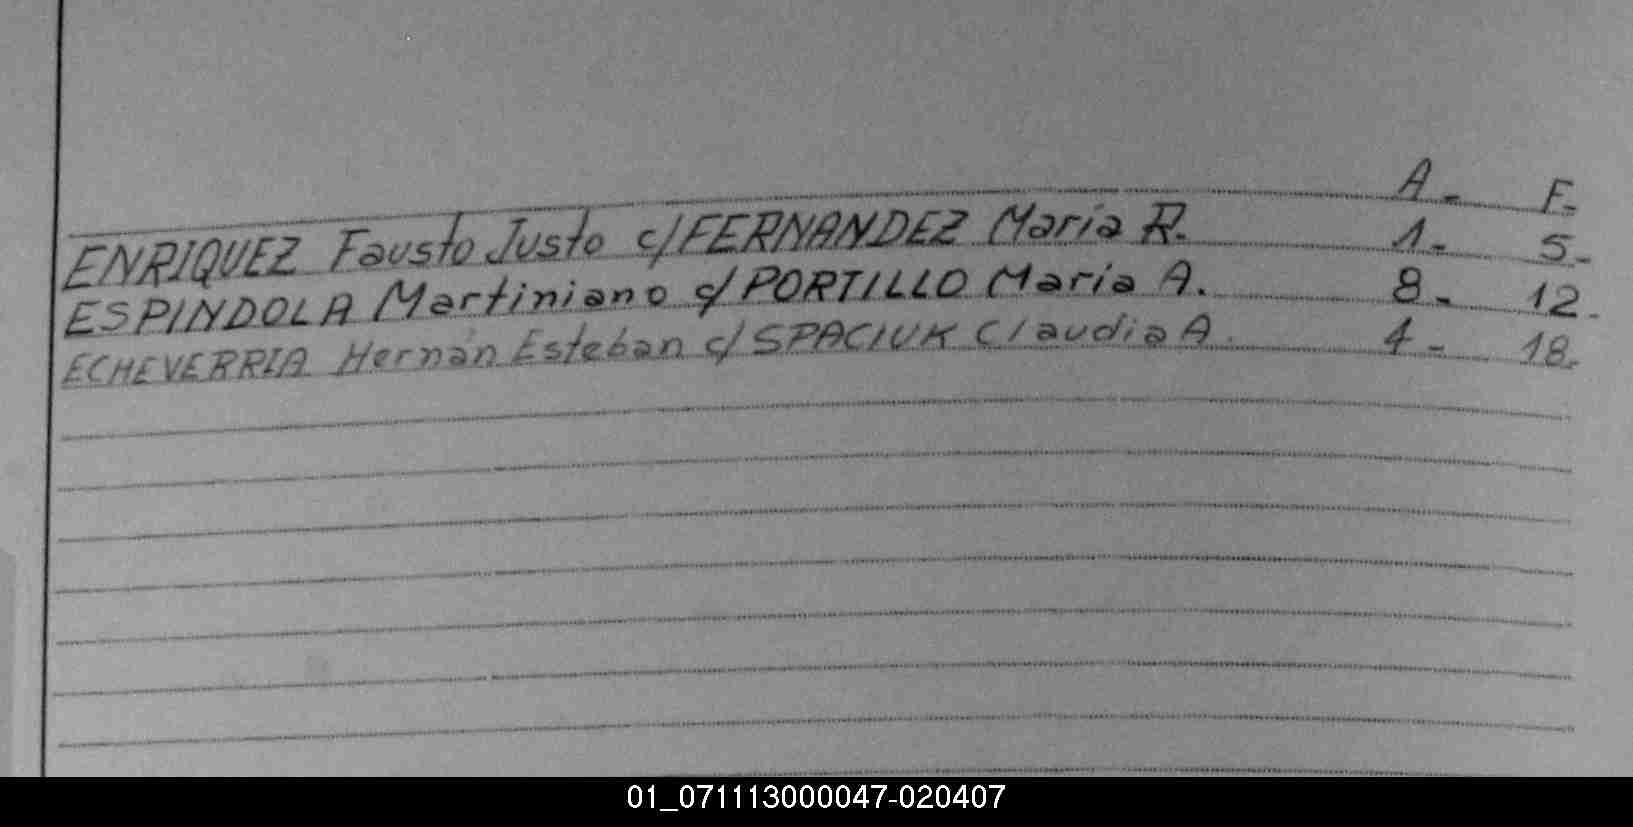 A- F-
ENRIQUEZ Fausto Justo c/FERNANDEZ María R. 1- 5-
ESPINDOLA Martiniano c/PORTILLO María A. 8- 12-
ECHEVERRIA Hernán Esteban c/SPACIUK Claudia A. 4- 18-
01_071113000047-020407